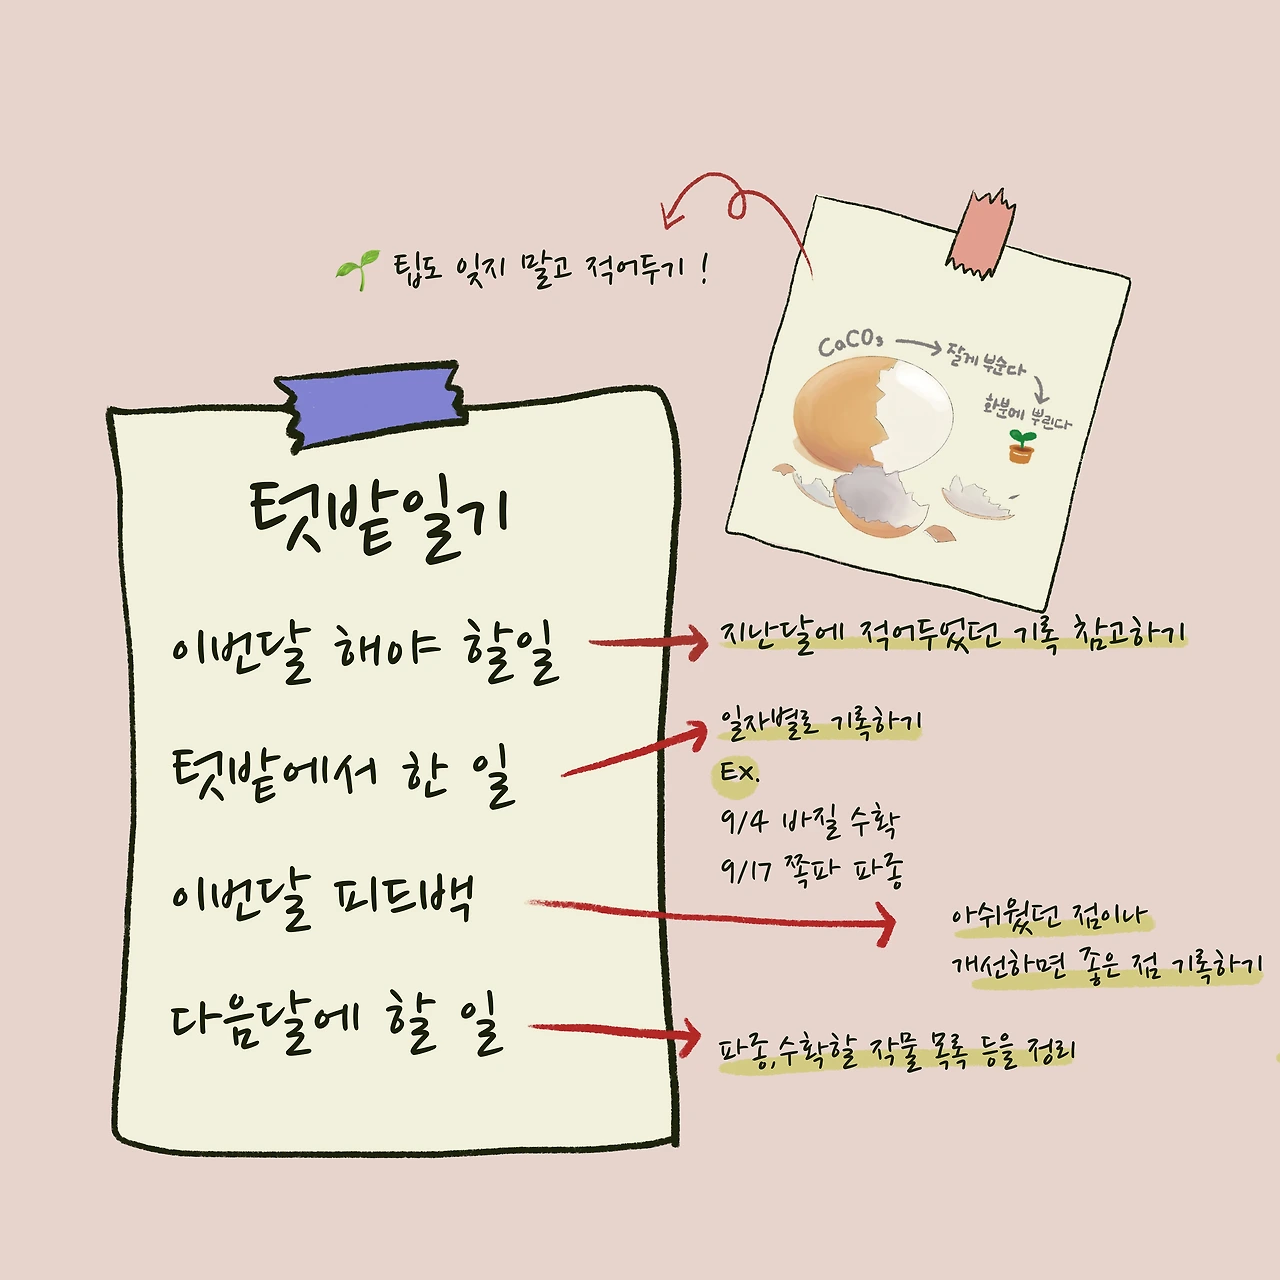 팁도 잊지 말고 적어두기 !
CaCO₃
잘게 부순다
화분에 뿌린다
텃밭일기
이번달 해야 할일
지난달에 적어두었던 기록 참고하기
텃밭에서 한 일
일자별로 기록하기
Ex.
9/4 바질 수확
9/17 쪽파 파종
이번달 피드백
아쉬웠던 점이나
개선하면 좋은 점 기록하기
다음달에 할 일
파종,수확할 작물 목록 등을 정리